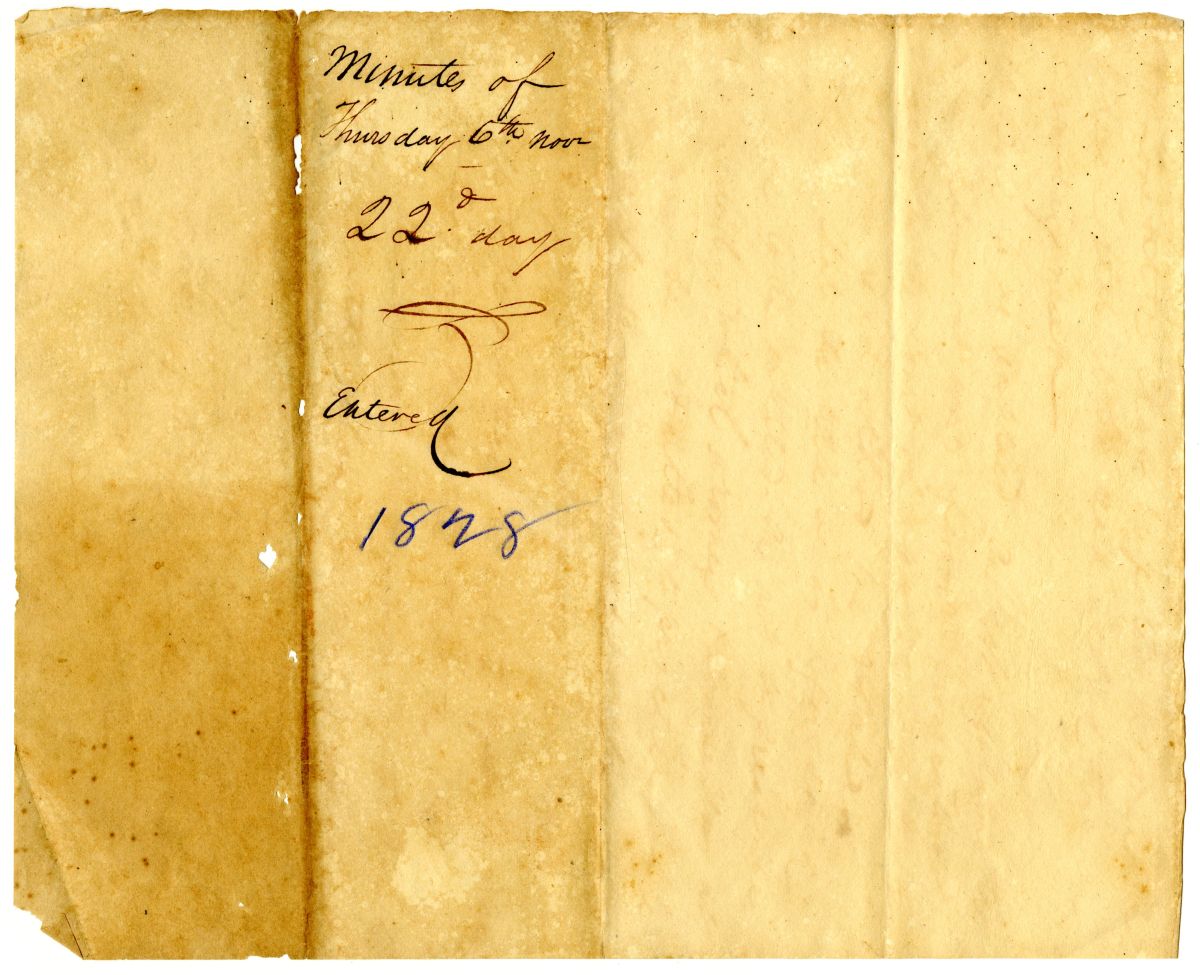 Minutes of
Thursday 6th Novr
22d day
Entered
1828